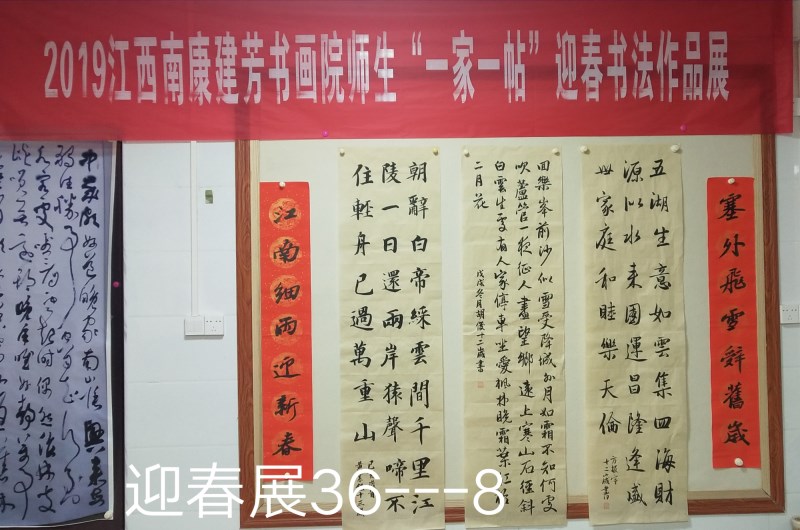 2019江西南康建芳书画院师生“一家一帖”迎春书法作品展
塞外飛雪辭舊歲
五湖生意如雲集四海財
源似水来國運昌隆逢盛
世家庭和睦樂天倫
十二歲書
回樂峯前沙似雪受降城外月如霜不知何處
吹蘆管一夜征人盡望鄉遠上寒山石徑斜
白雲生處有人家停車坐愛楓林晚霜葉红於
二月花
戊戌冬月胡俊十二歲書
朝辭白帝綵雲間千里江
陵一日還兩岸猿聲啼不
住輕舟已過萬重山
江南細雨迎新春
中歲頗好道晚家南山陲興来每
迎春展36---8